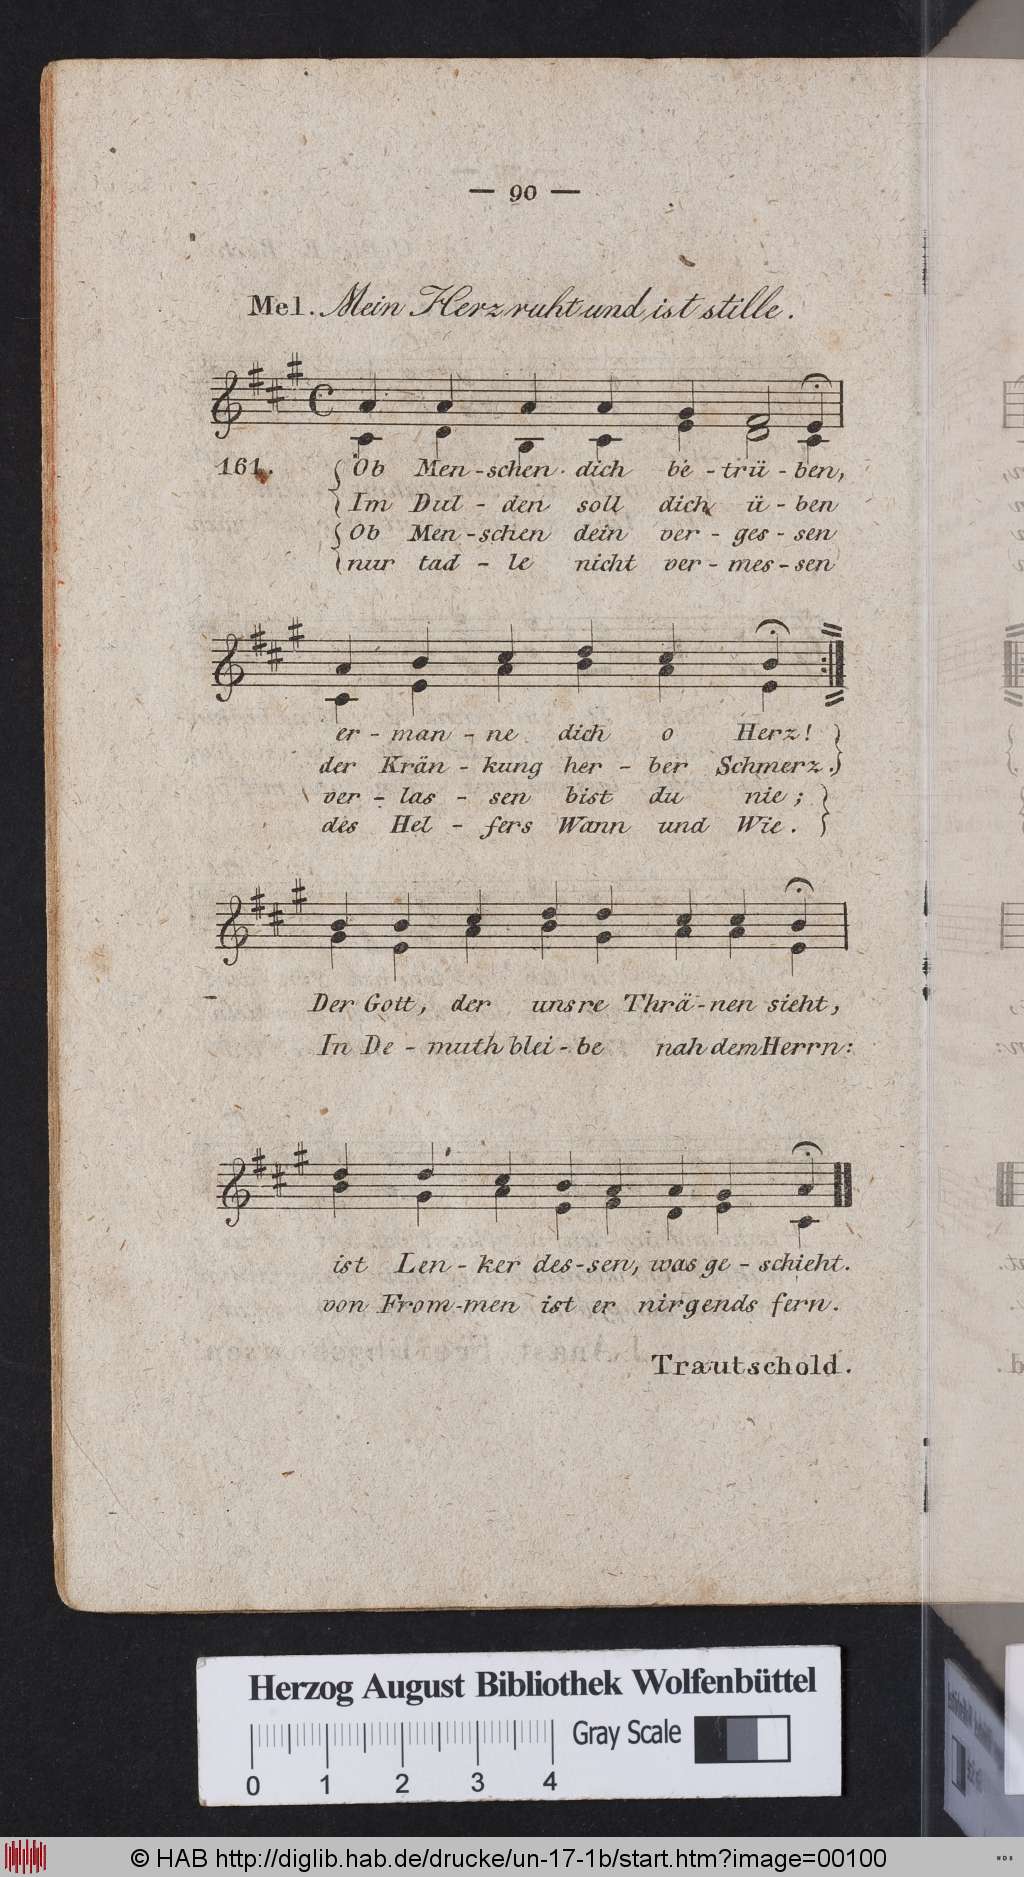 — 90 —
Mel. Mein Herz ruht und ist stille.
161. Ob Men-schen dich be-trü-ben,
Im Dul-den soll dich ü-ben
Ob Men-schen dein ver-ges-sen
nur tad-le nicht ver-mes-sen
er-man-ne dich o Herz!
der Krän-kung her-ber Schmerz.
ver-las-sen bist du nie;
des Hel-fers Wann und Wie.
Der Gott, der unsre Thrä-nen sieht,
In De-muth blei-be nah dem Herrn:
ist Len-ker des-sen, was ge-schieht.
von From-men ist er nirgends fern.
Trautschold.
Herzog August Bibliothek Wolfenbüttel
Gray Scale
0 1 2 3 4
© HAB http://diglib.hab.de/drucke/un-17-1b/start.htm?image=00100